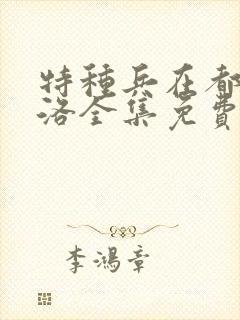 特種兵在都
洛全集免費
李鴻章